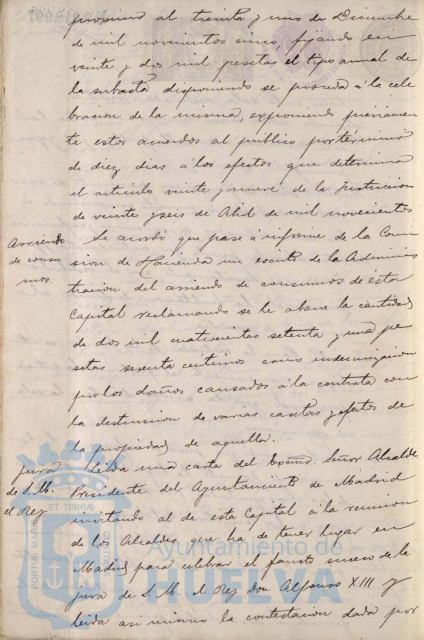 proximo al treinta y uno de Diciembre
de mil novecientos cinco, fijando en
veinte y dos mil pesetas el tipo anual de
la subasta disponiendo se proceda á la cele
bracion de la misma, exponiendo préviamen
te estos acuerdos al público por término
de diez dias á los efectos que determina
el artículo veinte y nueve de la Instruccion
de veinte y seis de Abril de mil novecientos
Arriendo
de consu
mos.
Se acordó que pase á informe de la Comi
sion de Hacienda un escrito de la Adminis
tracion del arriendo de consumos de ésta
Capital reclamando se le abone la cantidad
de dos mil cuatrocientas setenta y una pe
setas sesenta centimos como indemnizacion
por los daños causados á la contrata con
la destruccion de varias casetas y efectos de
la propiedad de aquella.
Jura
de S. M.
el Rey
Leida una carta del Excmo. Señor Alcalde
Presidente del Ayuntamiento de Madrid
invitando al de esta Capital á la reunion
de los Alcaldes que ha de tener lugar en
Madrid para celebrar el fausto suceso de la
jura de S. M. el Rey Don Alfonso XIII y
leida asi mismo la contestacion dada por
Ayuntamiento de
HUELVA